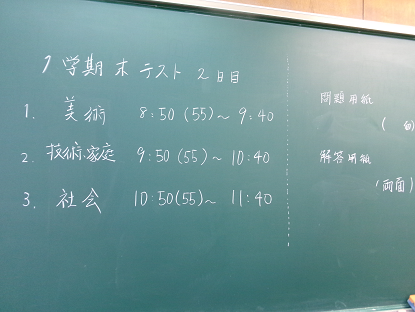 1学期末テスト 2日目
1. 美術 8:50(55)~ 9:40
2. 技術、家庭 9:50(55)~ 10:40
3. 社会 10:50(55)~ 11:40
問題用紙
(
解答用紙
(両面)